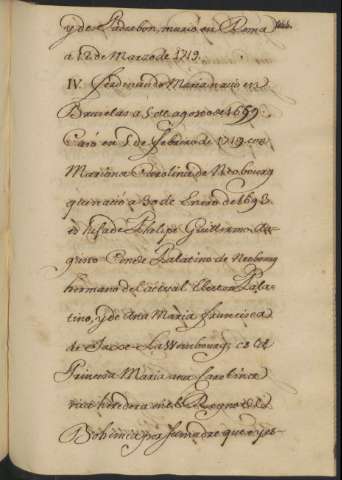 y de Ratisbon, murió en Roma
a 12 de Marzo de 1719.
IV. Ferdinando Maria nacio en
Bruselas a 5 de agosto de 1699.
Casò en 5 de Febrero de 1719. con
Mariana Carolina de Neobourg
que nació a 30 de Enero de 1693.
es hija de Phelipe Guillermo Au-
gusto Conde Palatino de Neobourg
hermano del actual Elector Pala-
tino, y de Ana Maria Francisca
de Saxe-Lawembourg; es la
Princesa Maria Ana Carolina
rica heredera en el Reyno de
Bohemia por su madre que oy es-